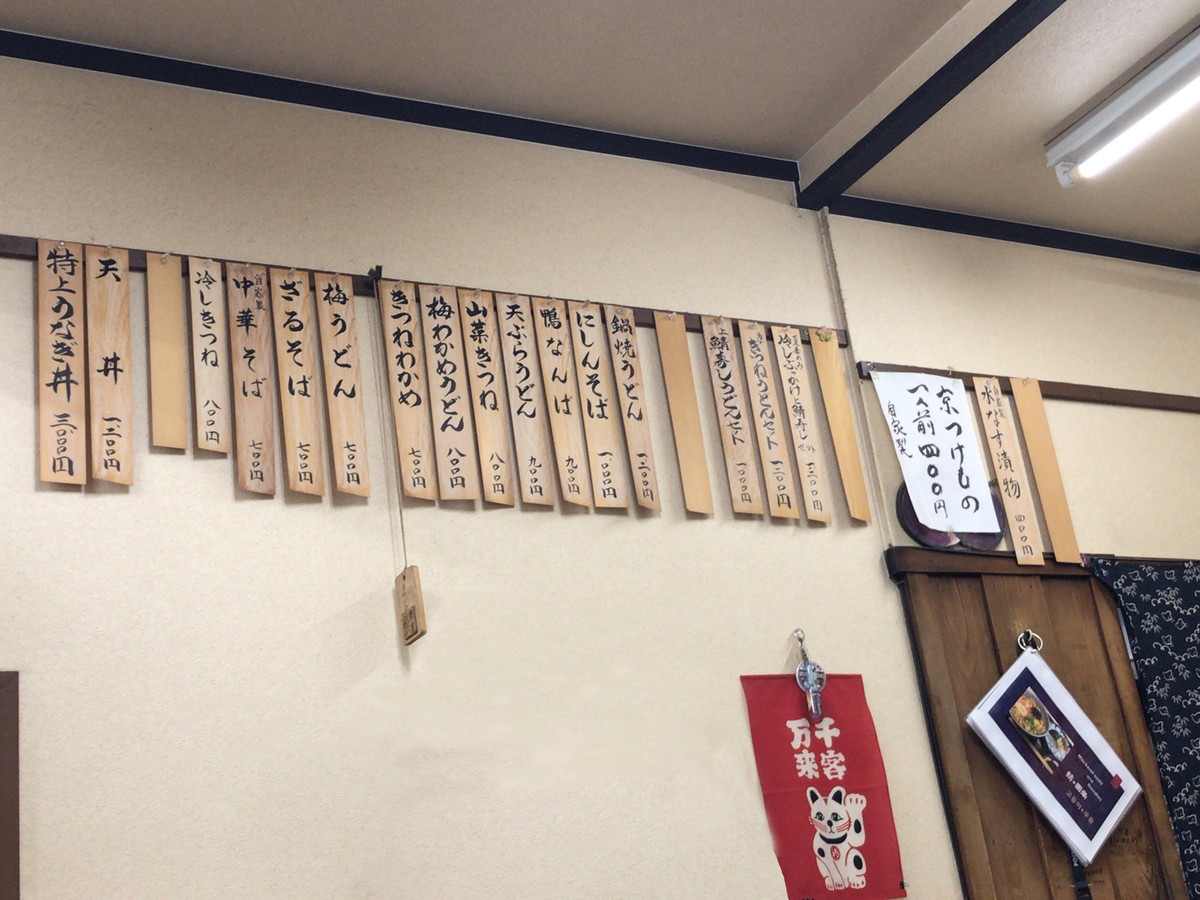 鍋焼うどん 一、三〇〇円
にしんそば 一、〇〇〇円
鴨なんば 九〇〇円
天ぷらうどん 九〇〇円
山菜きつね 八〇〇円
梅わかめうどん 八〇〇円
きつねわかめ 七〇〇円
梅うどん 七〇〇円
ざるそば 七〇〇円
自家製
中華そば 七〇〇円
冷しきつね 八〇〇円
天丼 一、三〇〇円
特上うなぎ丼 三、〇〇〇円
水なす漬物 四〇〇円
京つけもの
一人前四〇〇円
自家製
上鯖寿しうどんセット
きつねうどんセット
冷しぶっかけ上鯖寿しセット
千客
万来